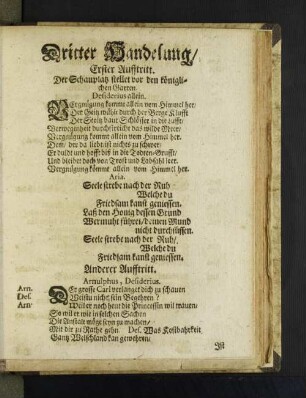 Dritter Handelung/
Erster Aufftritt.
Der Schauplatz stellet vor den königli-
chen Garten.
Desiderius allein.
Vergnügung kommt allein vom Himmel her/
Der Geitz wühlt durch der Berge Klufft
Der Stoltz baut Schlösser in die Lufft/
Verwegenheit durchstreicht das wilde Meer/
Vergnügung kommt allein vom Himmel her.
Dem/ der da liebt ist nichts zu schwer/
Er duldt und hofft biß in die Todten-Grufft/
Und bleibet doch von Trost und Labsahl leer.
Vergnügung kömt allein vom Himmel her.
Aria.
Seele strebe nach der Ruh
Welche du
Friedsam kanst geniessen.
Laß den Honig dessen Grund
Wermuht führet/ deinen Mund
nicht durchsüssen.
Seele strebe nach der Ruh/
Welche du
Friedsam kanst geniessen.
Anderer Aufftritt.
Arnulphus, Desiderius.
Arn. Der grosse Carl verlanget dich zu schauen
Des. Weistu nicht sein Begehren?
Arn. Weil er noch heut die Princessin wil trauen/
So wil er wie in solchen Sachen
Die Anstalt müge seyn zu machen/
Mit dir zu Rathe gehn. Des. Was Kostbahrkeit
Gantz Welschland kan gewehren/